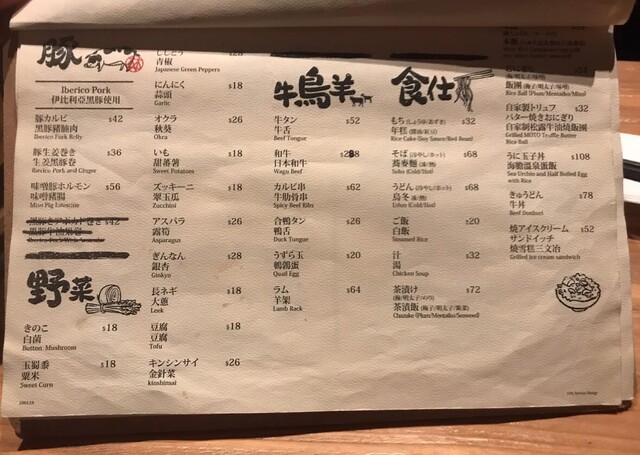 豚
Iberico Pork
伊比利亞黑豚使用
豚カルビ $42
黑豚豬腩肉
Iberico Pork Belly
豚生姜巻き $36
生姜黑豚卷
Iberico Pork and Ginger
味噌豚ホルモン $56
味噌豬腸
Miso Pig Intestine
$42
野菜
きのこ $18
白菌
Button Mushroom
玉蜀黍 $18
粟米
Sweet Corn
ししとう $28
青椒
Japanese Green Peppers
にんにく $18
蒜頭
Garlic
オクラ $26
秋葵
Okra
いも $18
甜蕃薯
Sweet Potatoes
ズッキーニ $18
翠玉瓜
Zucchini
アスパラ $26
露筍
Asparagus
ぎんなん $28
銀杏
Ginkyo
長ネギ $18
大蔥
Leek
豆腐 $18
豆腐
Tofu
キンシンサイ $26
金針菜
kinshinsai
牛鳥羊
牛タン $52
牛舌
Beef Tongue
和牛
日本和牛
Wagyu Beef
カルビ串 $62
牛肋骨串
Spicy Beef Ribs
合鴨タン $26
鴨舌
Duck Tongue
うずら玉 $20
鵪鶉蛋
Quail Egg
ラム $64
羊架
Lamb Rack
食仕
もち $32
年糕
Rice Cake (Soy Sauce/Red Bean)
そば (冷やし/ホット) $68
蕎麥麵 (冷/熱)
Soba (Cold/Hot)
うどん (冷やし/ホット) $68
烏冬 (凍/熱)
Udon (Cold/Hot)
ご飯 $20
白飯
Steamed Rice
汁 $32
湯
Chicken Soup
茶漬け $72
茶漬飯
Chazuke (Plum/Mentaiko/Seaweed)
飯團
Rice Ball (Plum/Mentaiko/Miso)
自家製トリュフ $32
バター焼きおにぎり
自家制松露牛油燒飯團
Grilled MOTO Truffle Butter
Rice Ball
うに玉子丼 $108
海膽溫泉蛋飯
Sea Urchin and Half Boiled Egg
with Rice
ぎゅうどん $78
牛丼
Beef Donburi
焼アイスクリーム $52
サンドイッチ
燒雪糕三文治
Grilled ice cream sandwich